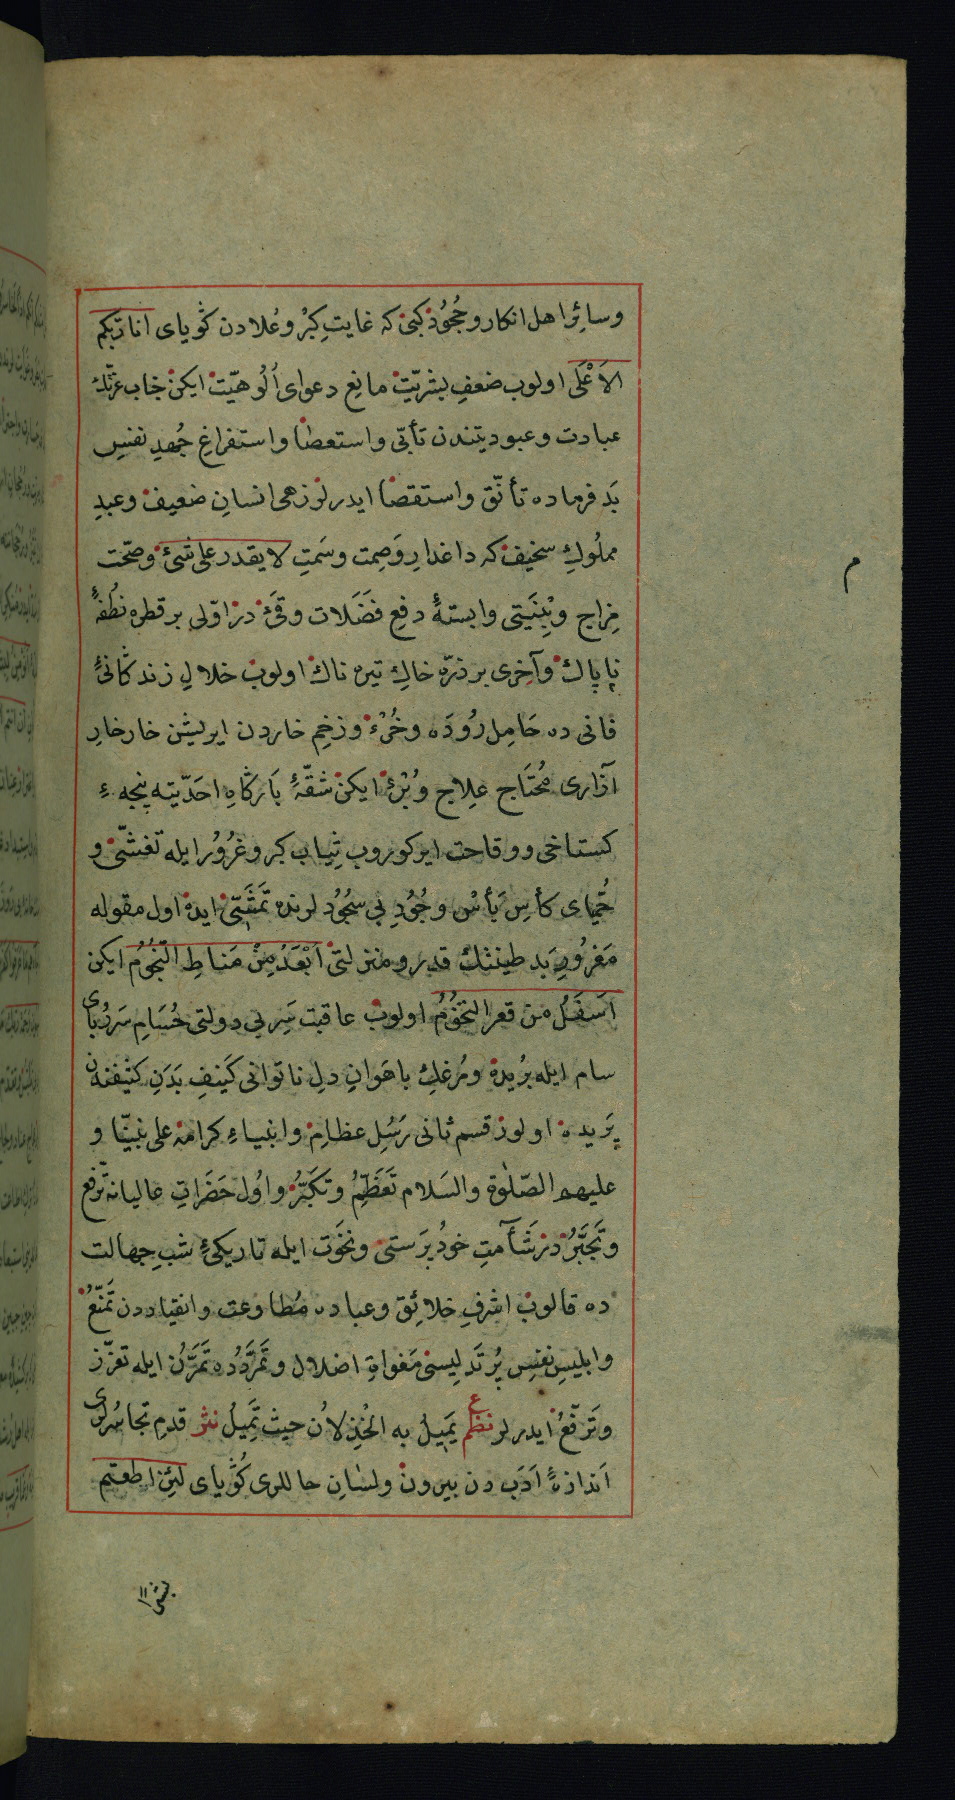 وسائر اهل انكار وجحود كبى كه غايت كبر وعلادن كوياى انا ربكم
الاعلى اولوب ضعف بشريت مانع دعواى الوهيت ايكن جناب عزتك
عبادت وعبوديتندن تأبى واستعطا واستفراغ جهد نفس
بد فرماده تأنق واستقصا ايدرلر زهى انسان ضعيف وعبد
مملوك سخيف كه داغدار وصمت وسمت لا يقدر على شئ وصحت
مزاج وبنيتى وابستهٔ دفع فضلات وقئ در اولى بر قطره نطفهٔ
ناپاك وآخرى بر ذره خاك تيره ناك اولوب خلال زندكانئ
فانى ده حامل روده وخرء وزخم خاردن ايريشن خارخار
آزارى محتاج علاج وبرء ايكن شقهٔ باركاه احديته پنجهء
كستاخى ووقاحت ايركوروب ثياب كبر وغرور ايله تغشى و
حمياى كأس يأس وجود بى سجودلرنده تمشى ايده اول مقوله
مغرور بد طينتك قدر ومنزلتى ابعد من مناط النجوم ايكن
اسفل من قعر التخوم اولوب عاقبت سر بى دولتى حسام سررباى
سام ايله بريده ومرغك باهوان دل ناتوانى كنيف بدن كثيفندن
پريده اولور قسم ثانى رسل عظام وانبياء كرامه على نبينا و
عليهم الصلوة والسلام تعظم وتكبر واول حضرات عاليانه ترفع
وتجبر در شآمت خودپرستى ونخوت ايله تاريكئ شب جهالت
ده قالوب اشرف خلائق وعباده مطاوعت وانقياددن تمنع
وابليس نفس پرتدليسنى مغواة اضلال وتمردده تمرن ايله تعزز
وترفع ايدرلر نظم ع يميل به الخذلان حيث تميل نثر قدم تجاسرلرى
اندازهٔ ادبدن بيرون ولسان حاللرى كوياى لئن اطعتم
م